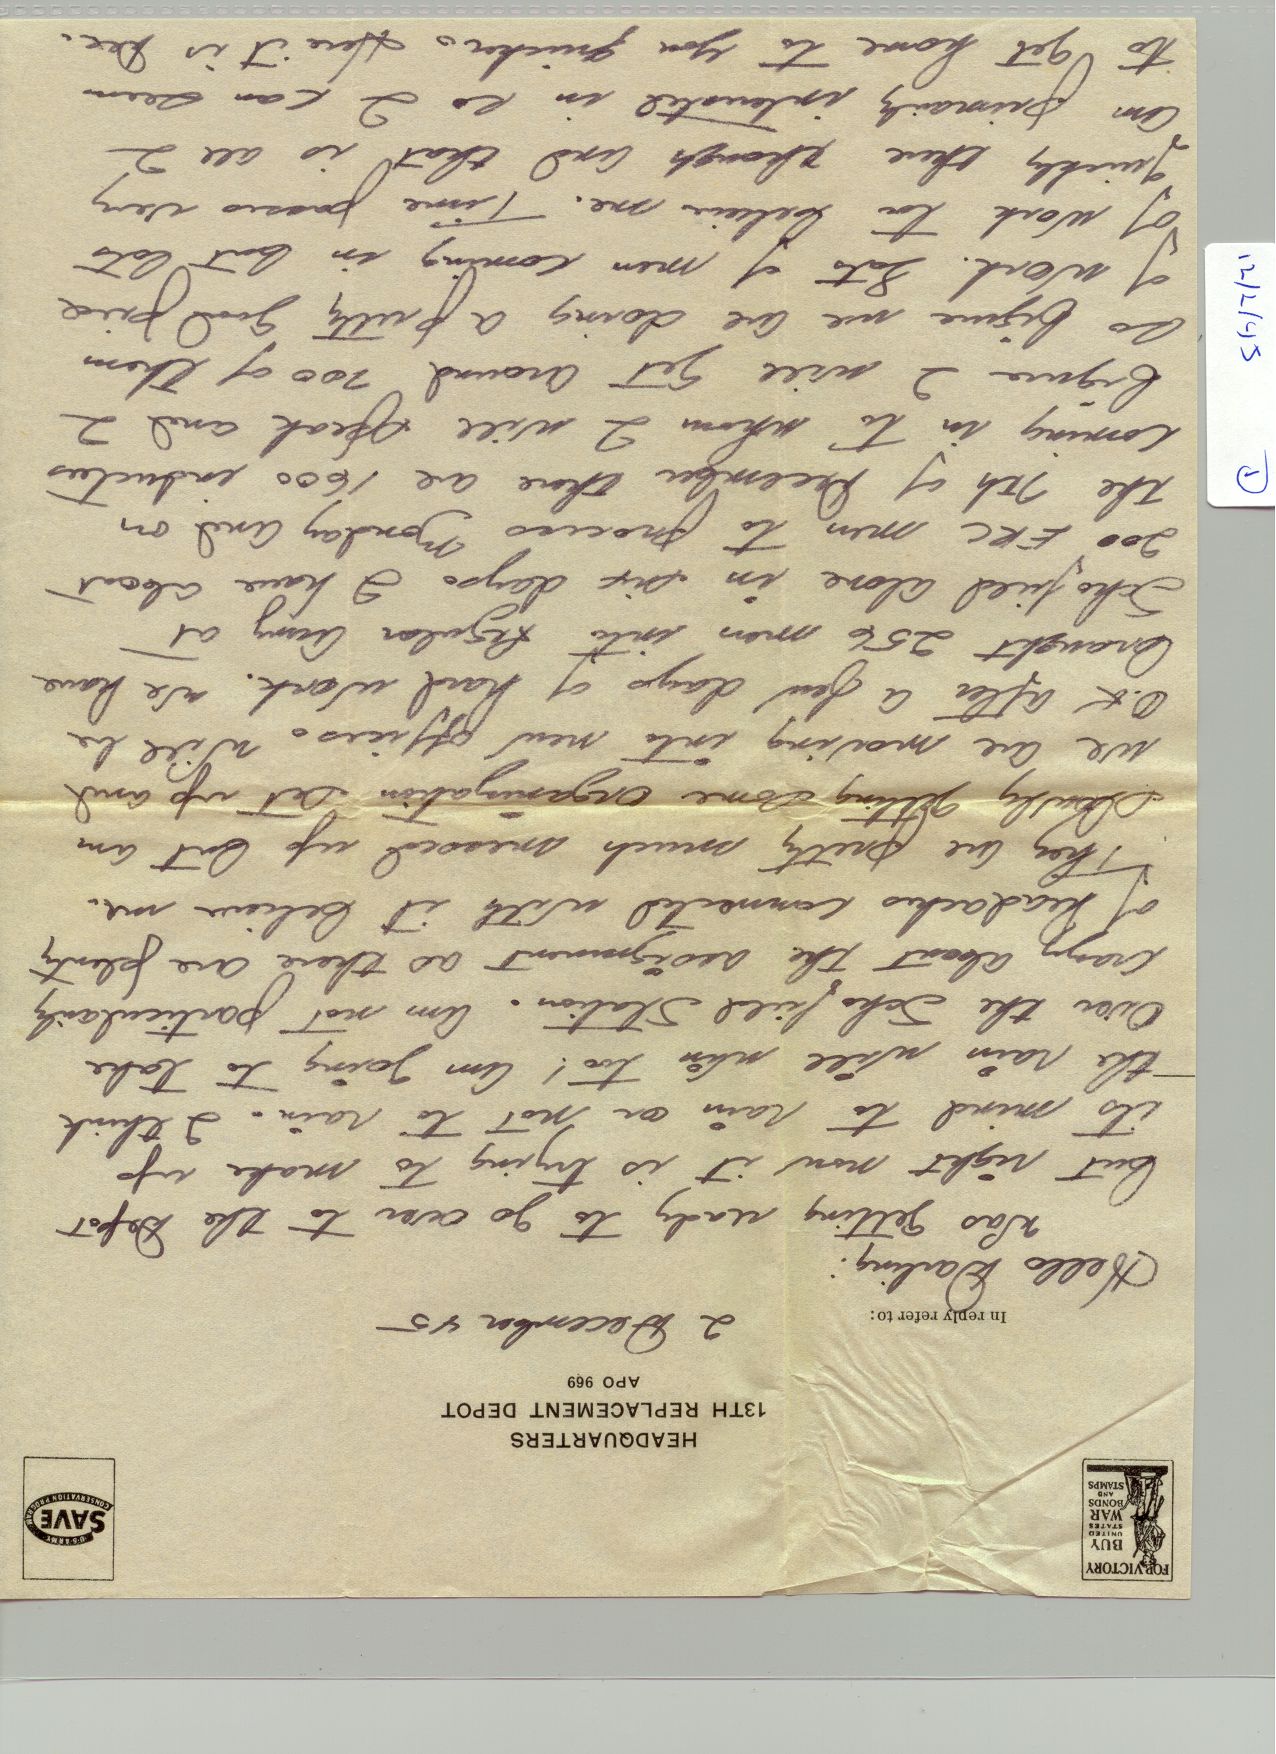 FOR VICTORY
BUY
UNITED
STATES
WAR
BONDS
AND
STAMPS
U·S·ARMY
SAVE
CONSERVATION PROGRAM
HEADQUARTERS
13TH REPLACEMENT DEPOT
APO 969
2 December 45
In reply refer to:
Hello Darling:
Was getting ready to go over to the Depot
but right now it is trying to make up
its mind to rain or not to rain. I think
the rain will win too! Am going to take
Over the Schofield Station. Am not particularily
crazy about the assignment as there are plenty
of headaches connected with it believe me.
They are pretty much messed up but am
slowly getting some organization set up and
we are moving into new offices. Will be
O.K after a few days of hard work. We have
brought 256 men into Regular Army at
Schofield alone in six days. I have about
200 ERC men to process Monday and on
the 7th of December there are 1600 inductees
coming in to whom I will speak and I
figure I will get around 700 of them
so figure we are doing a pretty good piece
of work. Lots of men coming in but lots
of work too believe me. Time passes very
quickly there though and that is all I
am primarily interested in so I can seem
to get home to you quicker. Here it is Dec.
12/2/45
①